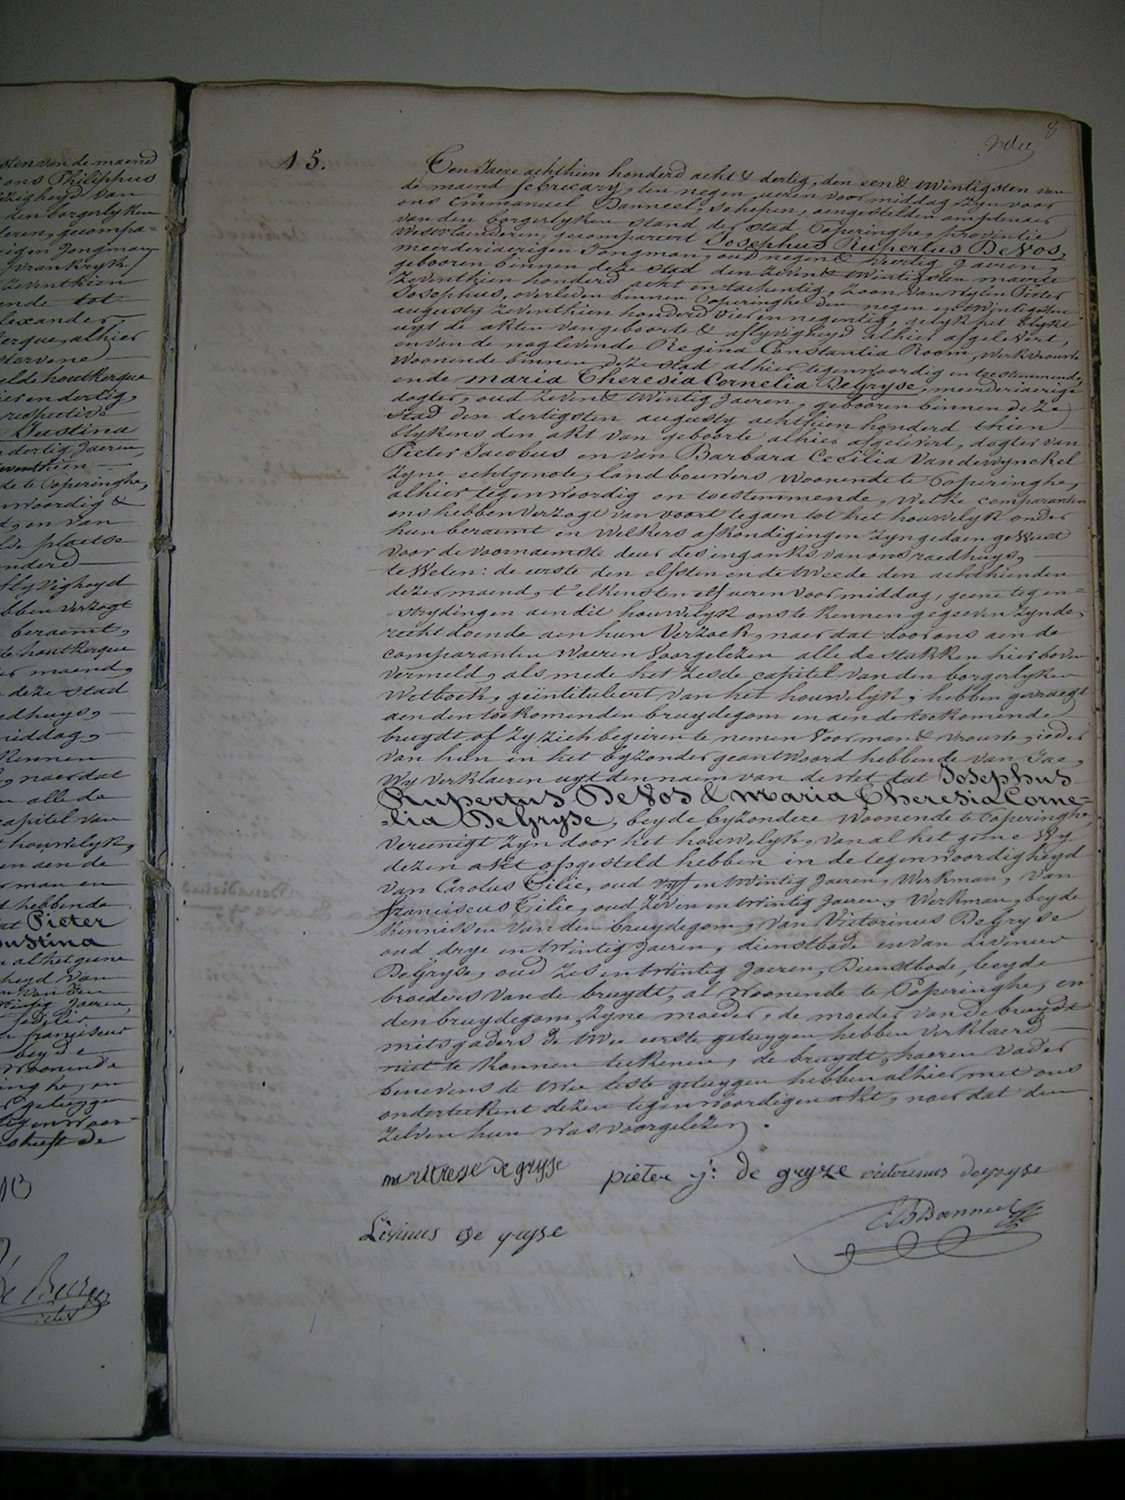 8
15.
Ten Jaere achthien honderd acht & dertig, den een & twintigsten van
de maend february, ten negen ueren voormiddag zyn voor
ons Emmanuel Banneel, schepen, aengestelden amptenaer
van den borgerlyken stand der stad Poperinghe, provintie
Westvlaenderen, gecompareert Josephus Rupertus DeVos,
meerderjaerigen Jongman, oud negen & veertig Jaeren,
gebooren binnen deze stad den zeven & twintigsten maerte
zeventhien honderd acht en tachentig, zoon van wylen Pieter
Josephus, overleden binnen Poperinghe den negen en twintigsten
augusty zeventhien honderd vier en negentig, gelyk het blykt
uyt de akten van geboorte & aflyvigheyd alhier afgelevert,
en van de naglevinde Regina Constantia Room, werkvrouwe
woonende binnen deze stad alhier tegenwoordig en toestemmende,
ende maria Theresia Cornelia DeGryse, meerderjaerige
dogter, oud zeven & twintig Jaeren, gebooren binnen deze
stad den dertigsten augusty achthien honderd thien
blykens den akt van geboorte alhier afgelevert, dogter van
Pieter Jacobus en van Barbara Cecilia Vandewynckel
zyne echtgenote, landbouwers woonende te Poperinghe,
alhier tegenwoordig en toestemmende, welke comparanten
ons hebben verzogt van voort tegaen tot het houwelyk onder
hun beraemt en welkers afkondigingen zyn gedaen geweest
voor de voornaemste deur des ingangks van ons raedhuys,
te weten: de eerste den elfsten en de tweede den achthienden
dezer maend, t'elkensten elf ueren voormiddag, geene tegen=
=strydingen aen dit houwelyk ons te kennen gegeeven zynde,
recht doende aen hun verzoek, naer dat door ons aen de
comparanten waeren voorgelezen alle de stukken hier boven
vermeld, als mede het zesde capitel van den borgerlyken
wetboek, geïntituleert van het houwelyk, hebben gevraegt
aen den toekomenden bruydegom en aen de toekomende
bruydt of zy zich begeiren te nemen voor man & vrouwe, ieder
van hun in het byzonder geantwoord hebbende van Jae,
Wy verklaeren uyt den naem van de wet dat Josephus
Rupertus DeVos & maria Theresia Corne=
=lia DeGryse, beyde byzondere woonende te Poperinghe,
vereenigt zyn door het houwelyk, van al het geene Wy
dezen akt opgesteld hebben in de tegenwoordigheyd
van Carolus Cilie, oud vyf en twintig Jaeren, Werkman, van
franciscus Cilie, oud zeven en twintig Jaeren, Werkman, beyde
kennissen van den bruydegom, van Victorinus DeGryse
oud drye en twintig Jaeren, dienstbode en van Livinus
DeGryse, oud zes en twintig Jaeren, Dienstbode, beyde
broeders van de bruydt, al woonende te Poperinghe, en
den bruydegom, zyne moeder, de moeder van de bruydt
mitsgaders de twee eerste getuygen hebben verklaerd
niet te konnen teekenen, de bruydt, haeren vader
benevens de twee leste getuygen hebben alhier met ons
onderteekent dezen tegenwoordigen akt, naer dat den
zelven hun was voorgelezen.
pieter j: de gryze victorinus degryse
Livinus de gryse